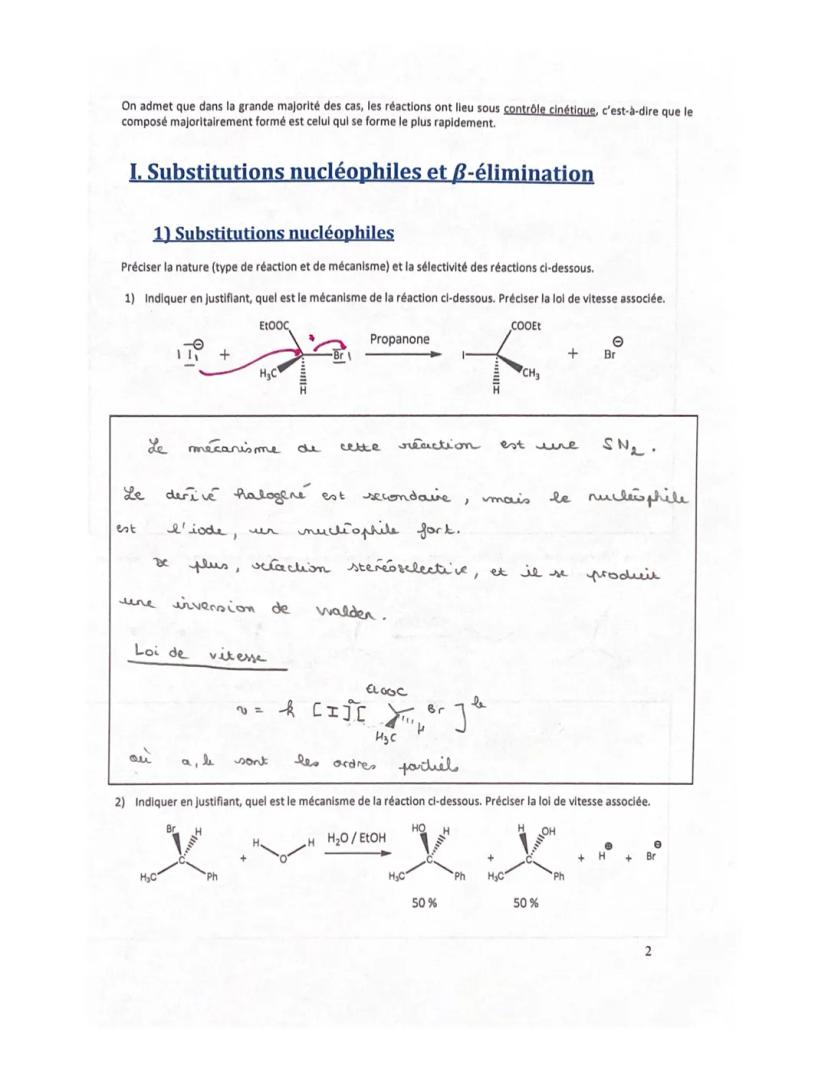 On admet que dans la grande majorité des cas, les réactions ont lieu sous contrôle cinétique, c'est-à-dire que le
composé majoritairement formé est celui qui se forme le plus rapidement.
I. Substitutions nucléophiles et β-élimination
1) Substitutions nucléophiles
Préciser la nature (type de réaction et de mécanisme) et la sélectivité des réactions ci-dessous.
1) Indiquer en justifiant, quel est le mécanisme de la réaction ci-dessous. Préciser la loi de vitesse associée.
EtOOC COOEt
Propanone
I ⊖ + Br I + Br ⊖
H₃C CH₃
H H
Le mécanisme de cette réaction est une SN₂.
Le derivé halogéné est secondaire, mais le nucléophile
est l'iode, un nucléophile fort.
De plus, réaction stéréoselective, et il se produit
une inversion de Walden.
Loi de vitesse
EtOOC
v = k [I⁻]ᵃ [ Br ]ᵇ
H₃C H
où a, b sont les ordres partiels
2) Indiquer en justifiant, quel est le mécanisme de la réaction ci-dessous. Préciser la loi de vitesse associée.
Br H HO H H OH
H H H₂O / EtOH
C + O C + C + H ⊕ + Br ⊖
H₃C Ph H₃C Ph H₃C Ph
50 % 50 %
2